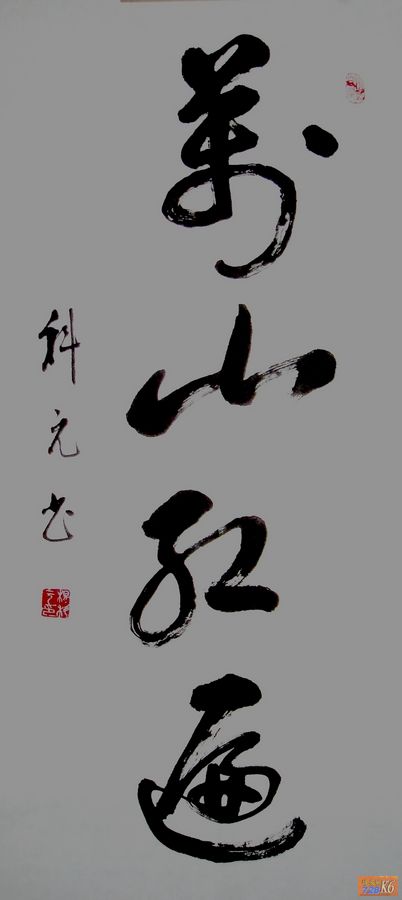 萬山红遍
科元书
K6